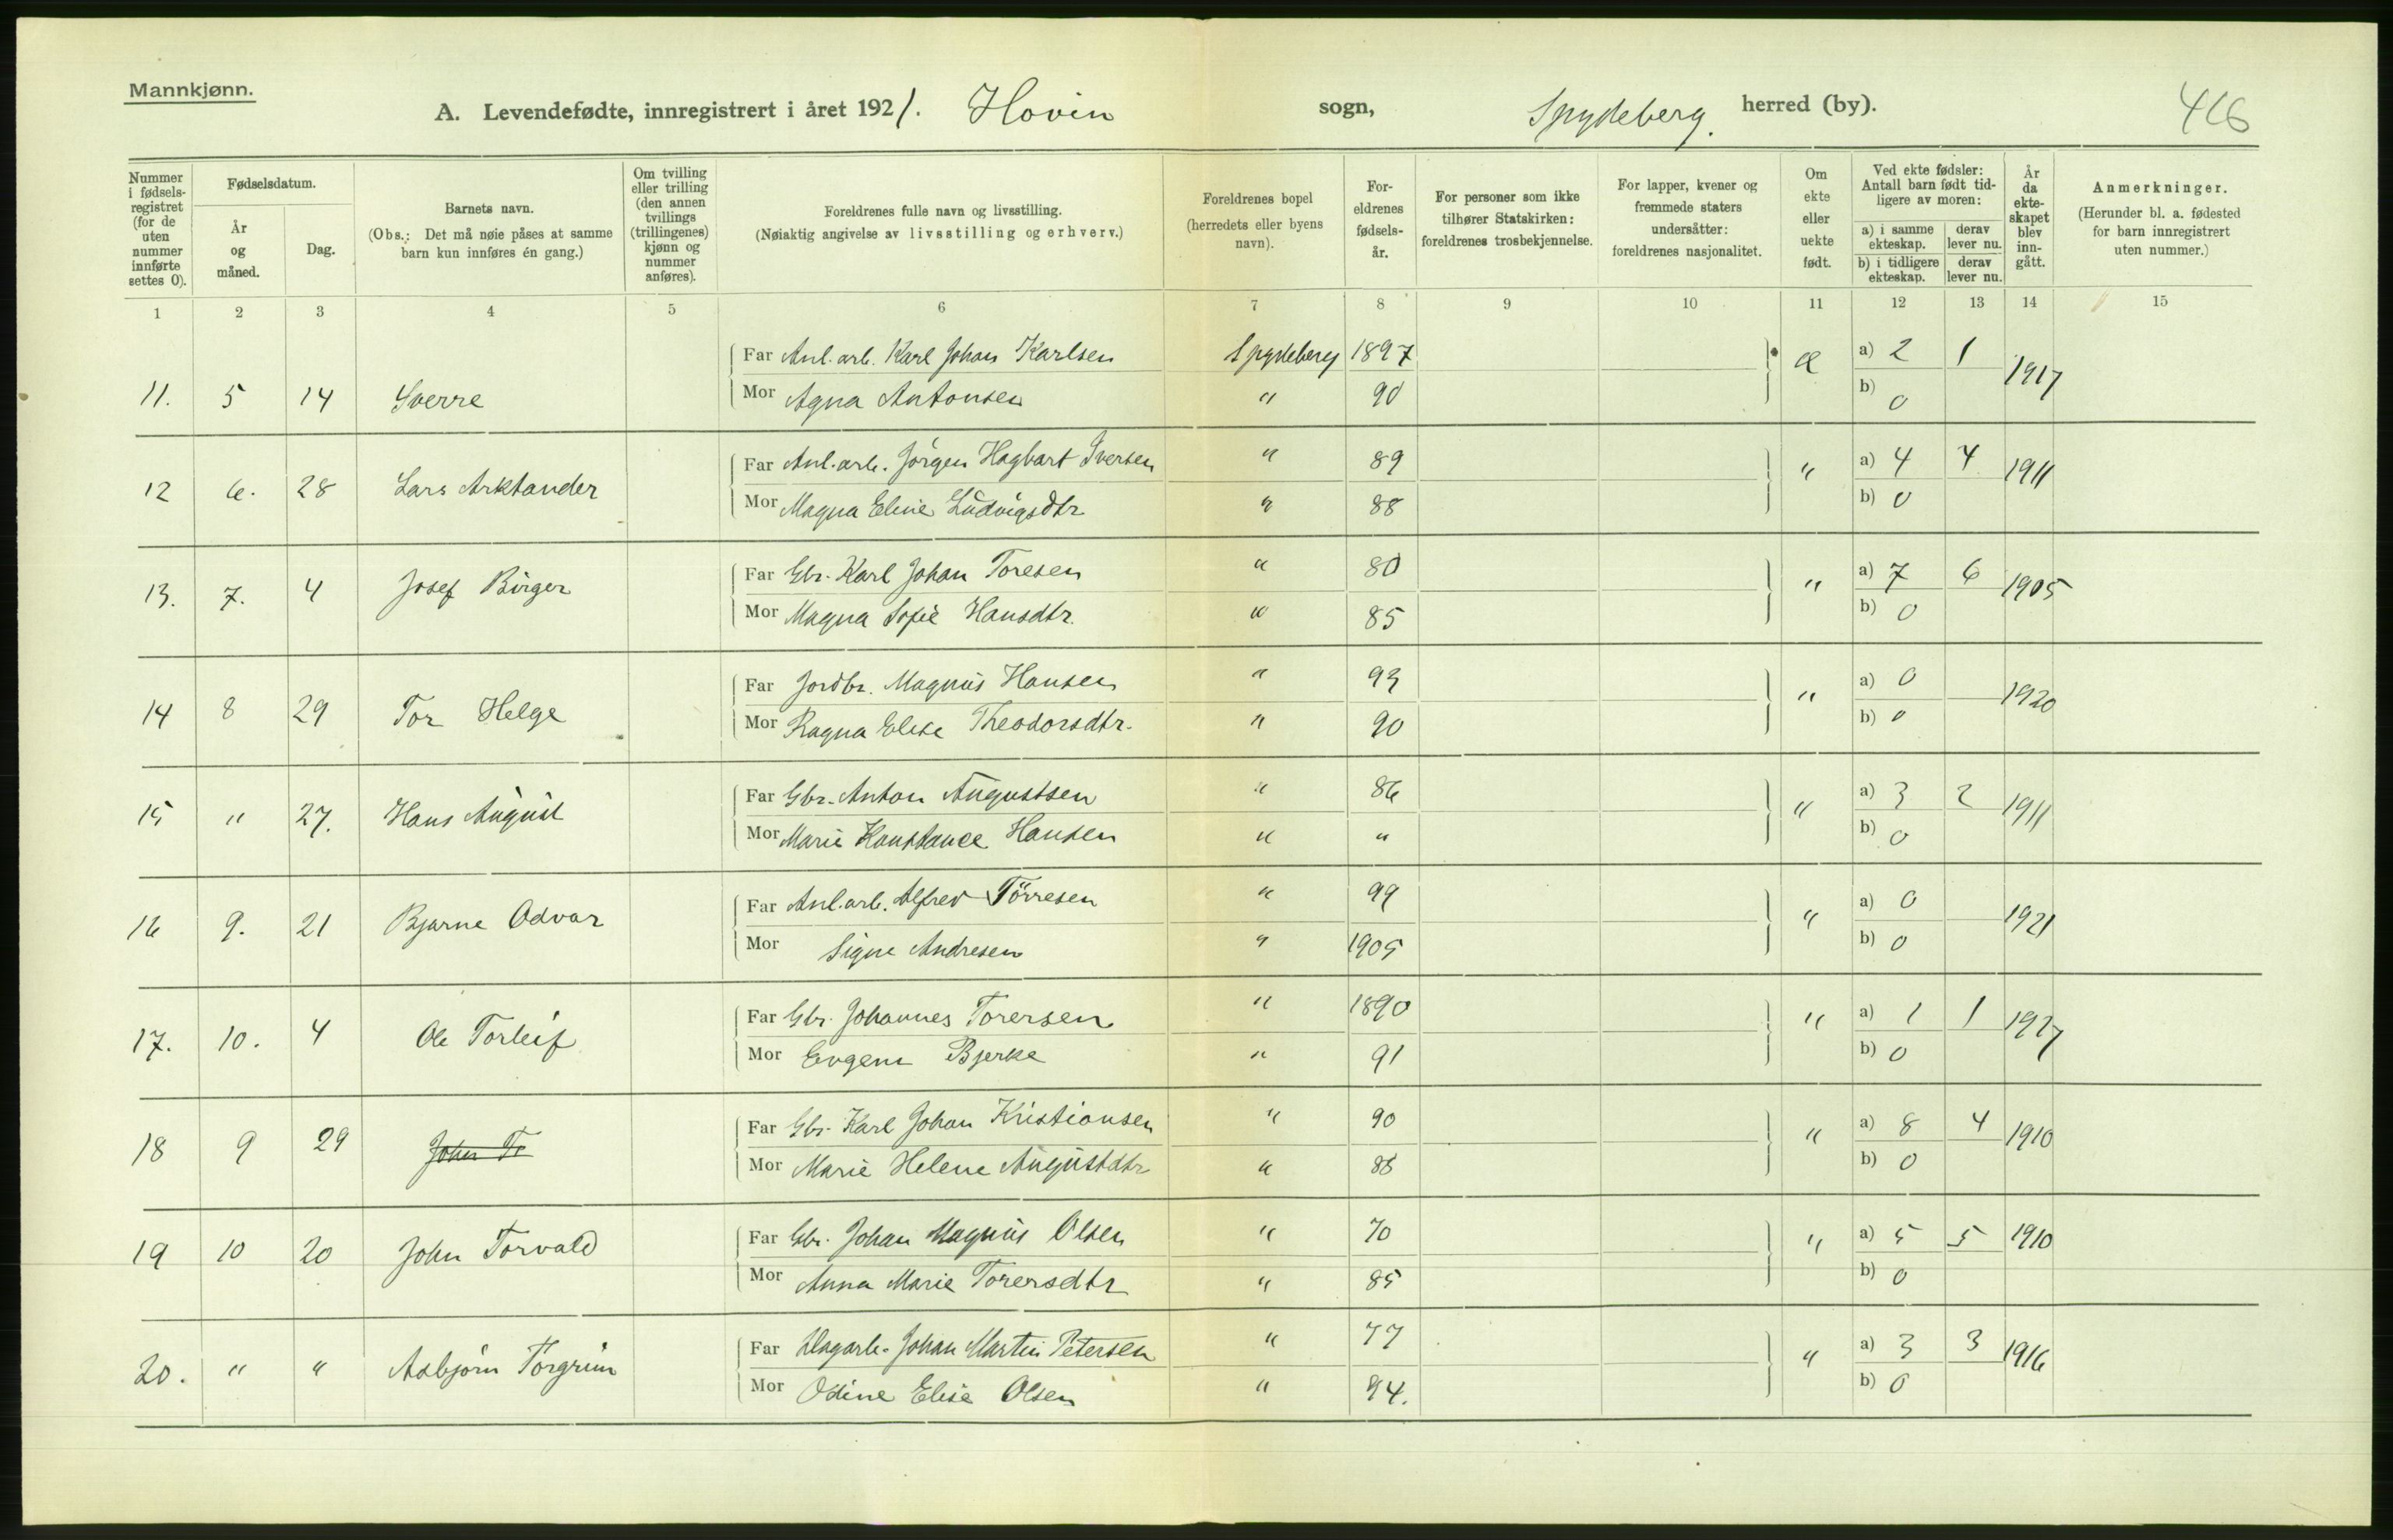 Mannkjønn.
A. Levendefødte, innregistrert i året 1921. Hovin sogn, Spydeberg. herred (by). 416
Nummer i fødselsregistret (for de uten nummer innførte settes 0).
Fødselsdatum.
År og måned.
Dag.
Barnets navn.
(Obs.: Det må nøie påses at samme barn kun innføres én gang.)
Om tvilling eller trilling (den annen tvillings (trillingenes) kjønn og nummer anføres).
Foreldrenes fulle navn og livsstilling.
(Nøiaktig angivelse av livsstilling og erhverv.)
Foreldrenes bopel (herredets eller byens navn).
For-eldrenes fødsels-år.
For personer som ikke tilhører Statskirken: foreldrenes trosbekjennelse.
For lapper, kvener og fremmede staters undersåtter: foreldrenes nasjonalitet.
Om ekte eller uekte født.
Ved ekte fødsler: Antall barn født tidligere av moren:
a) i samme ekteskap. derav lever nu.
b) i tidligere ekteskap. derav lever nu.
År da ekteskapet blev inngått.
Anmerkninger.
(Herunder bl. a. fødested for barn innregistrert uten nummer.)
1 2 3 4 5 6 7 8 9 10 11 12 13 14 15
Far Anl.arb. Karl Johan Karlsen Spydeberg 1897 a) 2 1
11. 5 14 Sverre Mor Agna Antonsen " 90 æ b) 0 1917
Far Anl.arb. Jörgen Hagbart Iversen " 89 a) 4 4
12 6. 28 Lars Arktander Mor Magna Eline Ludvigsdtr " 88 " b) 0 1911
Far Gbr. Karl Johan Toresen " 80 a) 7 6
13. 7. 4 Josef Birger Mor Magna Sofie Hansdtr. " 85 " b) 0 1905
Far Jordbr. Magnus Hansen " 93 a) 0
14 8 29 Tor Helge Mor Ragna Elise Theodorsdtr. " 90 " b) 0 1920
Far Gbr. Anton Augustsen " 86 a) 3 2
15 " 27. Hans August Mor Marie Konstance Hansen " " " b) 0 1911
Far Anl.arb. Alfred Törresen " 99 a) 0
16 9. 21 Bjarne Odvar Mor Signe Andresen " 1905 " b) 0 1921
Far Gbr. Johannes Torersen " 1890 a) 1 1
17. 10. 4 Ole Torleif Mor Evgenu Bjerke " 91 " b) 0
Far Gbr. Karl Johan Kristiansen " 90 a) 8 4
18 9 29 John To Mor Marie Helene Augustdtr " 88 " b) 0 1910
Far Gbr. Johan Magnus Olsen " 70 a) 5 5
19 10 20 John Torvald Mor Anna Marie Torersdtr " 85 " b) 0 1910
Far Dagarb. Johan Martin Petersen " 77 a) 3 3
20. " " Asbjörn Torgrim Mor Odine Elise Olsen " 94. " b) 0 1916